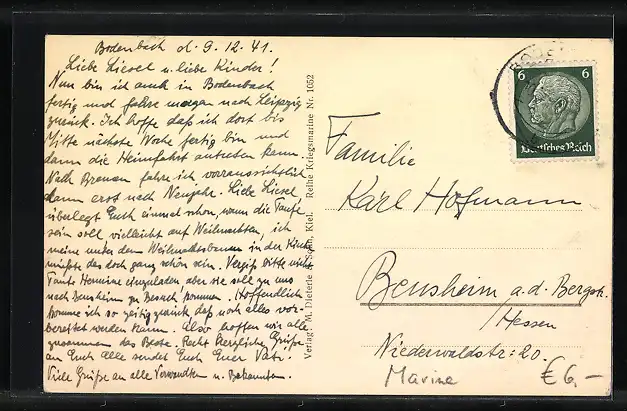 Bodenbach d. 9. 12. 41.
Liebe Liesel u. liebe Kinder!
Nun bin ich auch in Bodenbach
fertig und fahre morgen nach Leipzig
zurück. Ich hoffe daß ich dort bis
Mitte nächste Woche fertig bin und
dann die Heimfahrt antreten kann.
Nach Bremen fahre ich voraussichtlich
dann erst nach Neujahr. Liebe Liesel
überlegt Euch einmal schon, wann die Taufe
sein soll vielleicht auf Weihnachten, ich
meine unter dem Weihnachtsbaum in der Kirche
müßte das doch ganz schön sein. Vergiß bitte nicht
Tante Hermine einzuladen aber sie soll zu uns
nach Bensheim zu Besuch kommen. Hoffentlich
komme ich so zeitig zurück daß noch alles vor-
bereitet werden kann. Also hoffen wir alle
zusammen das Beste. Recht herzliche Grüße
an Euch alle sendet Euch Euer Vati.
Viele Grüße an alle Verwandten u. Bekannten.
Verlag: M. Dieterle & Sohn, Kiel. Reihe Kriegsmarine Nr. 1052
6 6
Deutsches Reich
Familie
Karl Hofmann
Bensheim a. d. Bergstr.
/Hessen
Niederwaldstr: 20.
Marine €6,-